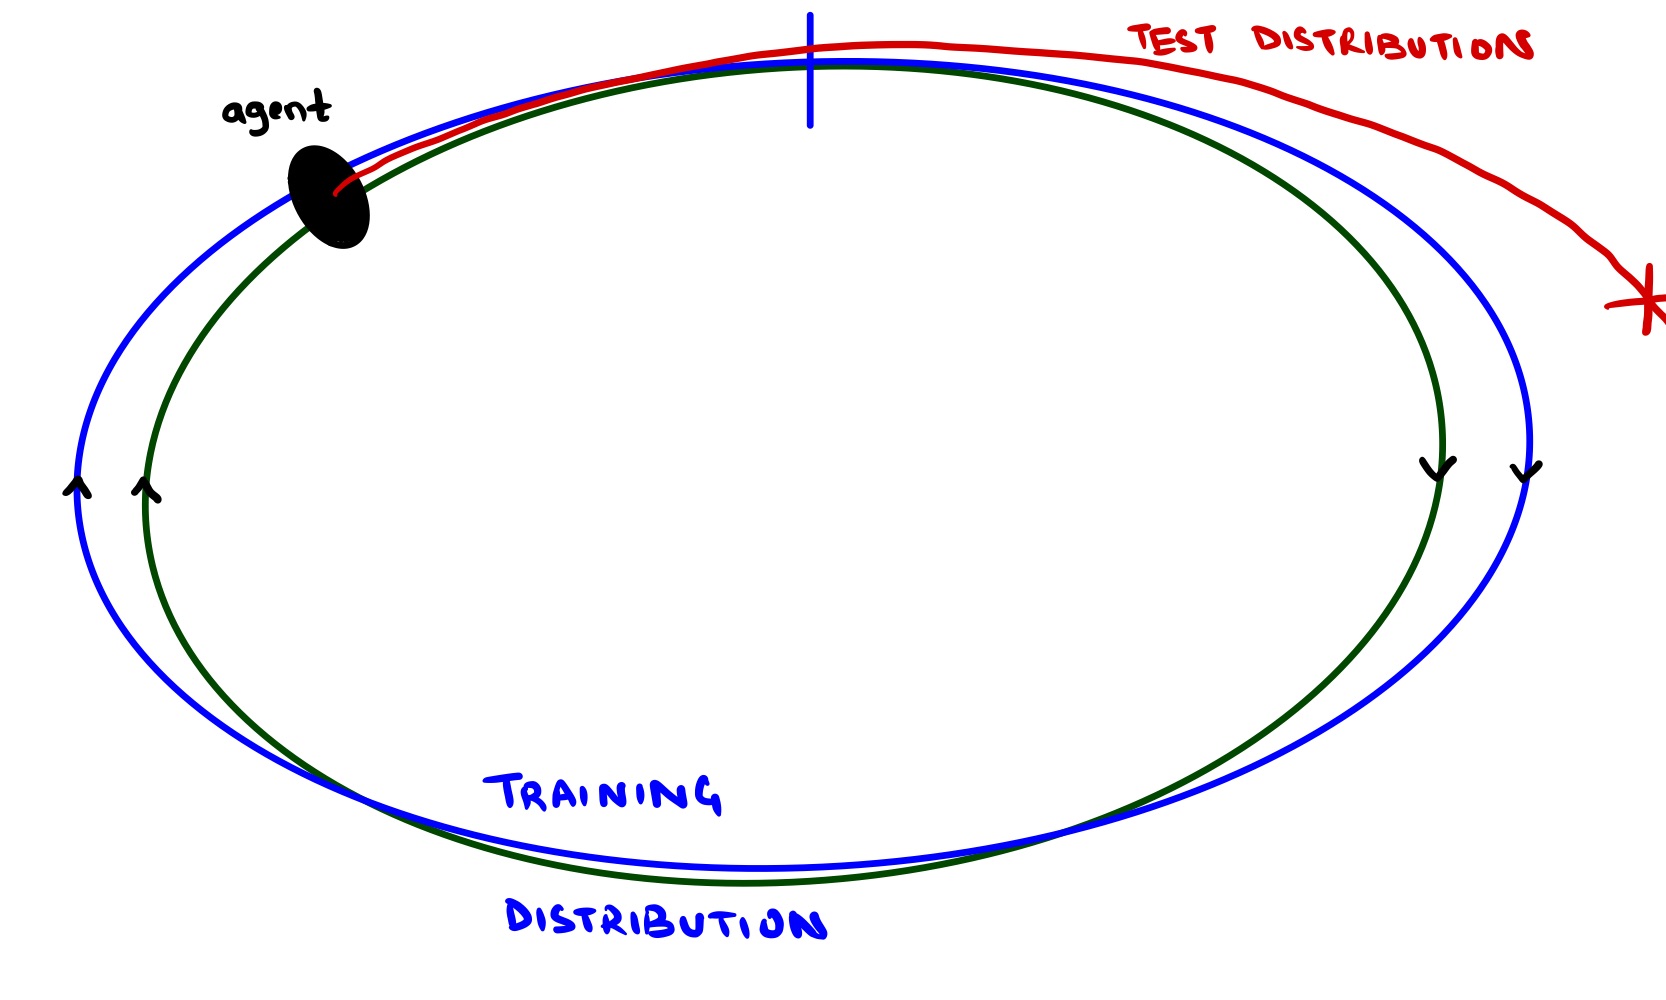 TEST DISTRIBUTION
agent
TRAINING
DISTRIBUTION